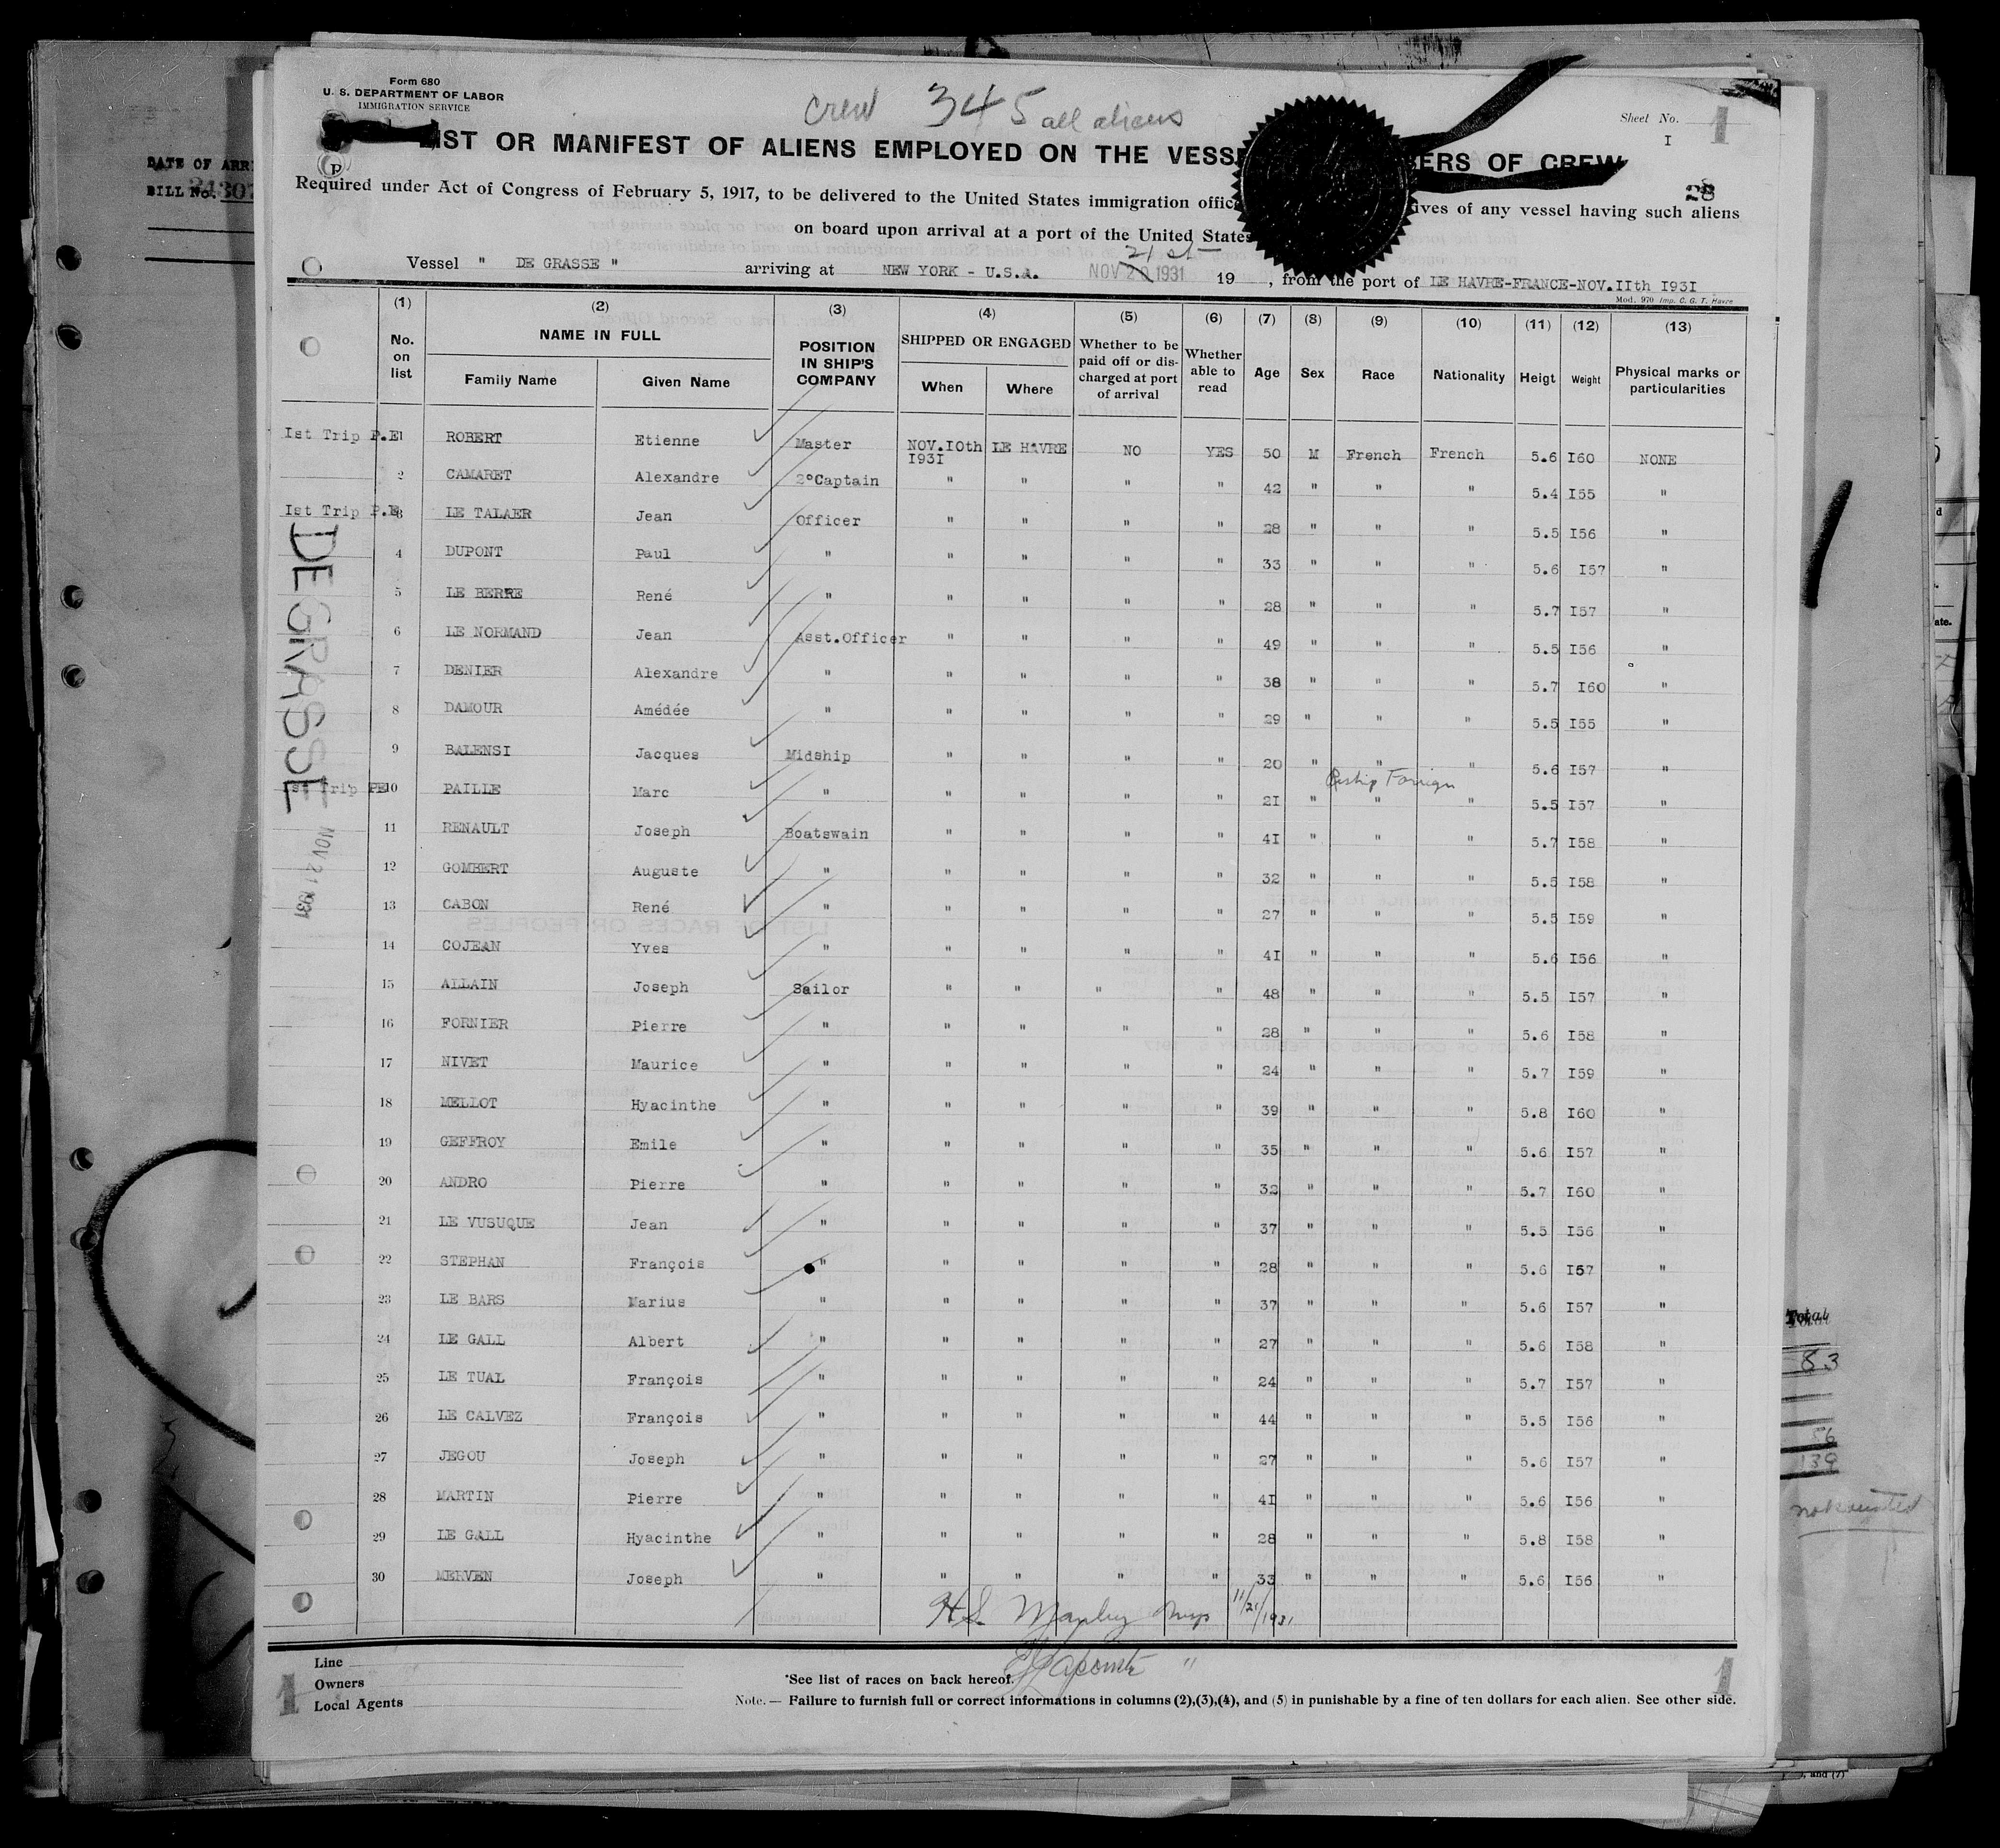 Form 680
U. S. DEPARTMENT OF LABOR
IMMIGRATION SERVICE
crew 345 all aliens
Sheet No. I
1
LIST OR MANIFEST OF ALIENS EMPLOYED ON THE VESSE BERS OF CREW
28
Required under Act of Congress of February 5, 1917, to be delivered to the United States immigration offic ives of any vessel having such aliens
on board upon arrival at a port of the United States
21 st
Vessel " DE GRASSE " arriving at NEW YORK - U.S.A. NOV 20 1931 19 , from the port of LE HAVRE-FRANCE-NOV.IIth I93I
Mod. 970 Imp. C. G. T. Havre
(1) (2) (3) (4) (5) (6) (7) (8) (9) (10) (11) (12) (13)
No. on list NAME IN FULL Family Name Given Name POSITION IN SHIP'S COMPANY SHIPPED OR ENGAGED When Where Whether to be paid off or discharged at port of arrival Whether able to read Age Sex Race Nationality Heigt Weight Physical marks or particularities
Ist Trip P.E 1 ROBERT Etienne Master NOV.IOth I93I LE HAVRE NO YES 50 M French French 5.6 I60 NONE
2 CAMARET Alexandre 2°Captain " " " " 42 " " " 5.4 I55 "
Ist Trip P.E 3 LE TALAER Jean Officer " " " " 28 " " " 5.5 I56 "
4 DUPONT Paul " " " " " 33 " " " 5.6 I57 "
5 LE BERRE René " " " " " 28 " " " 5.7 I57 "
6 LE NORMAND Jean Asst.Officer " " " " 49 " " " 5.5 I56 "
7 DENIER Alexandre " " " " " 38 " " " 5.7 I60 "
8 DAMOUR Amédée " " " " " 29 " " " 5.5 I55 "
9 BALENSI Jacques Midship " " " " 20 " " " 5.6 I57 "
Foreign
Ist Trip PE 10 PAILLE Marc " " " " " 2I " " " 5.5 I57 "
11 RENAULT Joseph Boatswain " " " " 4I " " " 5.7 I58 "
12 GOMBERT Auguste " " " " " 32 " " " 5.5 I58 "
13 CABON René " " " " " 27 " " " 5.5 I59 "
14 COJEAN Yves " " " " " 4I " " " 5.6 I56 "
15 ALLAIN Joseph Sailor " " " " 48 " " " 5.5 I57 "
16 FORNIER Pierre " " " " " 28 " " " 5.6 I58 "
17 NIVET Maurice " " " " " 24 " " " 5.7 I59 "
18 MELLOT Hyacinthe " " " " " 39 " " " 5.8 I60 "
19 GEFFROY Emile " " " " " 35 " " " 5.6 I57 "
20 ANDRO Pierre " " " " " 32 " " " 5.7 I60 "
21 LE VUSUQUE Jean " " " " " 37 " " " 5.5 I56 "
22 STEPHAN François " " " " " 28 " " " 5.6 I57 "
23 LE BARS Marius " " " " " 37 " " " 5.6 I57 "
24 LE GALL Albert " " " " " 27 " " " 5.6 I58 "
25 LE TUAL François " " " " " 24 " " " 5.7 I57 "
26 LE CALVEZ François " " " " " 44 " " " 5.5 I56 "
27 JEGOU Joseph " " " " " 27 " " " 5.6 I57 "
28 MARTIN Pierre " " " " " 4I " " " 5.6 I56 "
29 LE GALL Hyacinthe " " " " " 28 " " " 5.8 I58 "
30 MERVEN Joseph " " " " " 33 " " " 5.6 I56 "
H.S. Manley Insp 11/21/1931
Line
Owners
Local Agents
*See list of races on back hereof.
Note. — Failure to furnish full or correct informations in columns (2),(3),(4), and (5) in punishable by a fine of ten dollars for each alien. See other side.
1
1
DE GRASSE
NOV 21 1931
DATE OF ARR
BILL No.
Total
83
56
139